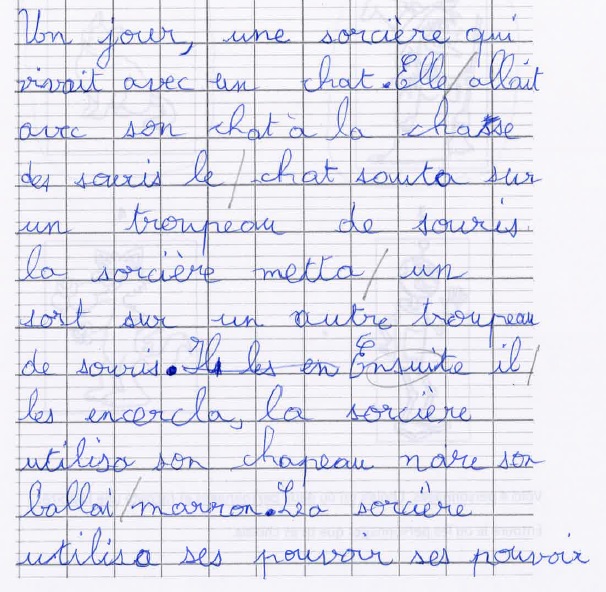 Un jour, une sorcière qui
vivait avec un chat. Elle / allait
avec son chat à la chasse
des souris le / chat sauta sur
un troupeau de souris.
la sorcière metta / un
sort sur un autre troupeau
de souris. Ils les en Ensuite il /
les encercla, la sorcière
utilisa son chapeau noire son
ballai / marron. La sorcière
utilisa ses pouvoir ses pouvoir